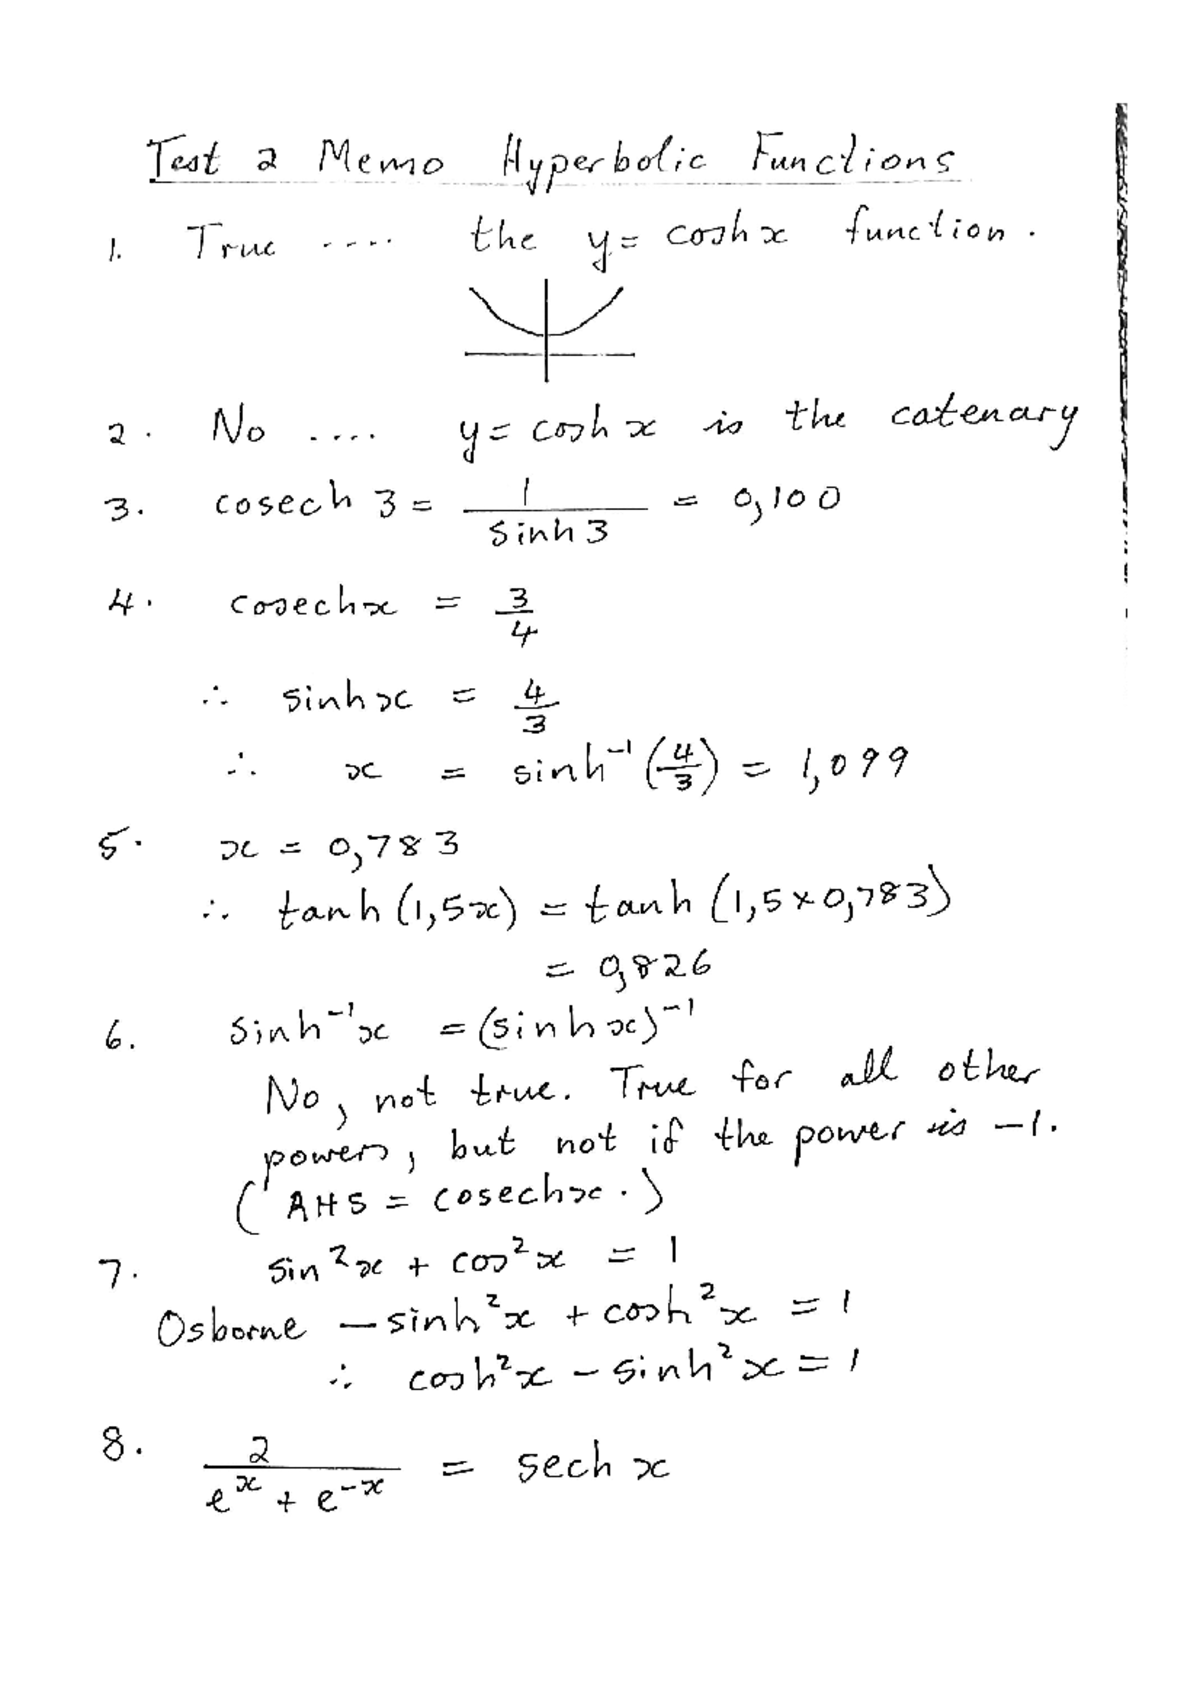 Test 2 Memo Hyperbolic Functions
1. True .... the y = cosh x function.
2. No .... y = cosh x is the catenary
3. cosech 3 = 1/sinh 3 = 0,100
4. cosech x = 3/4
∴ sinh x = 4/3
∴ x = sinh⁻¹(4/3) = 1,099
5. x = 0,783
∴ tanh (1,5x) = tanh (1,5 × 0,783)
= 0,826
6. sinh⁻¹x = (sinh x)⁻¹
No, not true. True for all other
powers, but not if the power is −1.
(AHS = cosech x.)
7. sin²x + cos²x = 1
Osborne − sinh²x + cosh²x = 1
∴ cosh²x − sinh²x = 1
8. 2/(eˣ + e⁻ˣ) = sech x